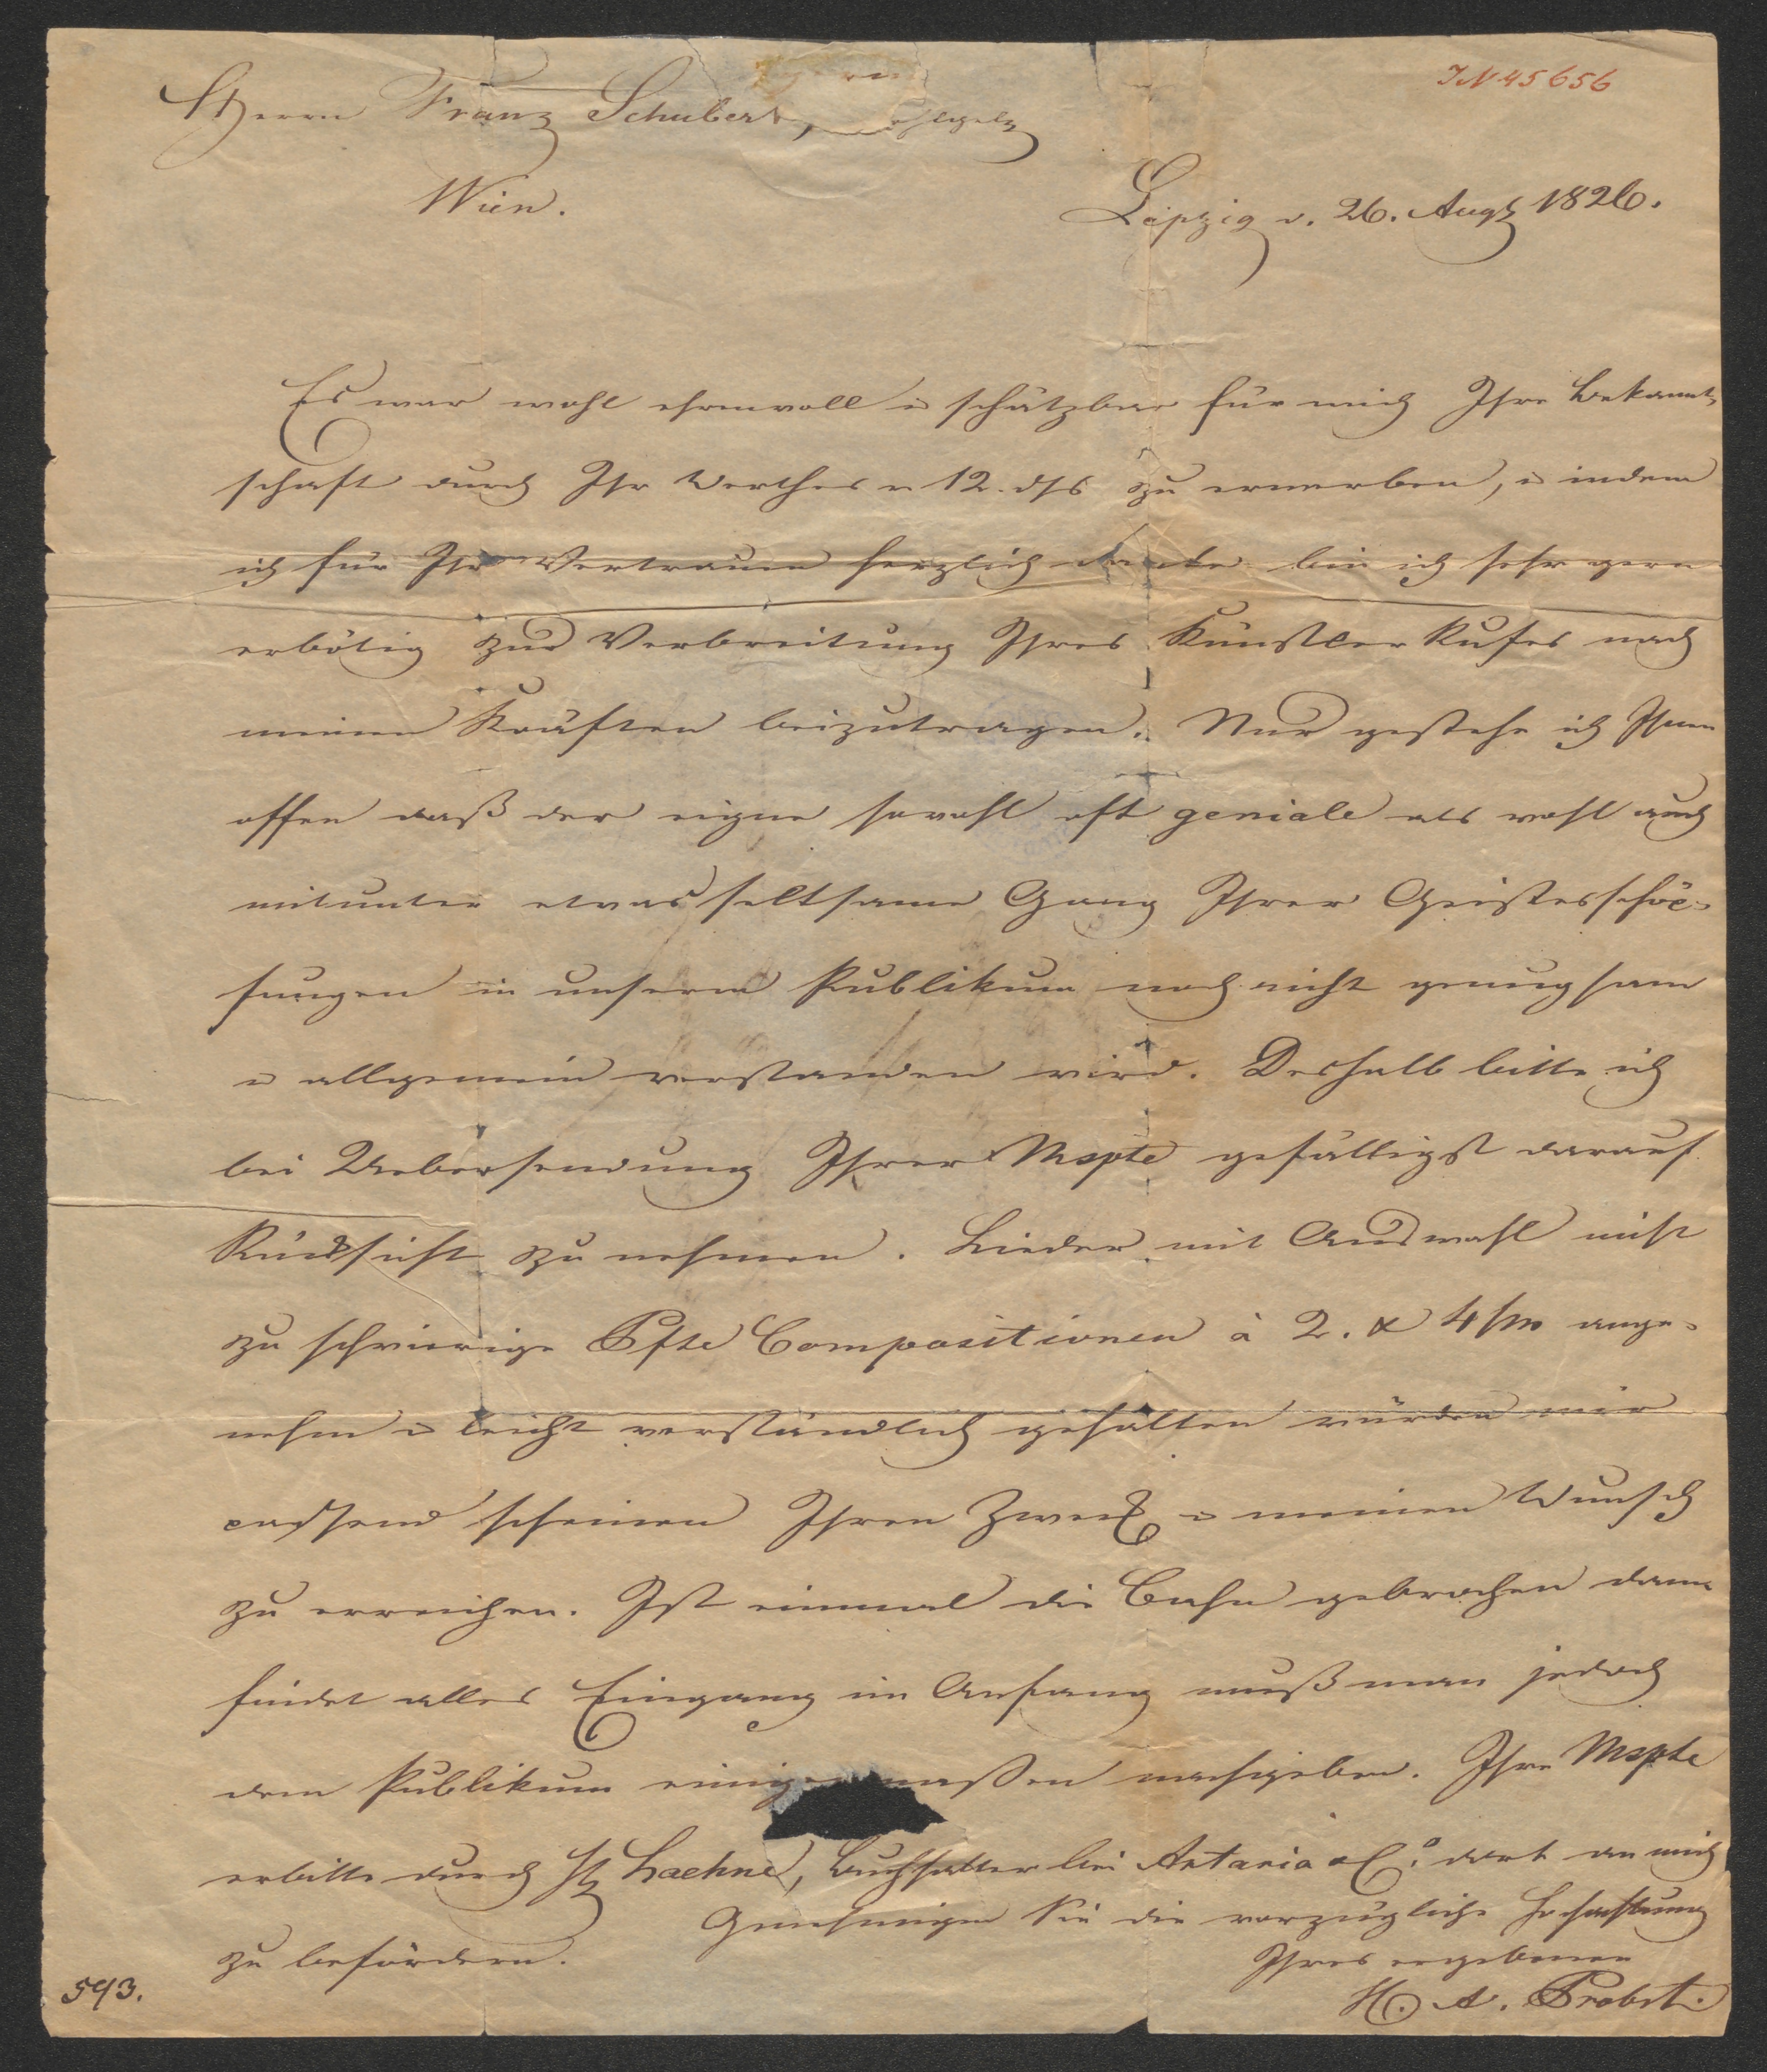 IN 45656
Herrn Franz Schubert,
Wien.
Leipzig d. 26. Augst 1826.
Es war wohl ehrenvoll u schätzbar für mich Ihre Bekannt-
schaft durch Ihr Werthes v 12. dss zu erwerben, u indem
ich für Ihr Vertrauen herzlich danke bin ich sehr gern
erbötig zur Verbreitung Ihres Künstler Rufes nach
meinen Kräften beizutragen. Nur gestehe ich Ihnen
offen daß der eigne sowohl oft geniale als wohl auch
mitunter etwas seltsame Gang Ihrer Geistesschöp-
fungen in unserm Publikum noch nicht genugsam
u allgemein verstanden wird. Deshalb bitte ich
bei Uebersendung Ihrer Mspte gefälligst darauf
Rücksicht zu nehmen. Lieder mit Auswahl nicht
zu schwierige Pfte Compositionen à 2. & 4/m ange-
nehm u leicht verständlich gehalten würden mir
passend scheinen Ihren Zweck u meinen Wunsch
zu erreichen. Ist einmal die Bahn gebrochen dann
findet alles Eingang im Anfang muß man jedoch
dem Publikum einigermaßen nachgeben. Ihre Mspte
erbitte durch H Laehne, Buchhalter bei Artaria & Co. dort an mich
zu befördern.
Genehmigen Sie die vorzügliche Hochachtung
Ihres ergebenen
H. A. Probst.
593.